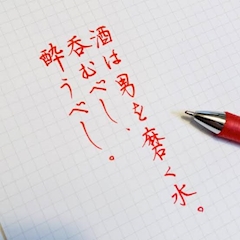 酒は男を磨く水。
呑むべし、
酔うべし。